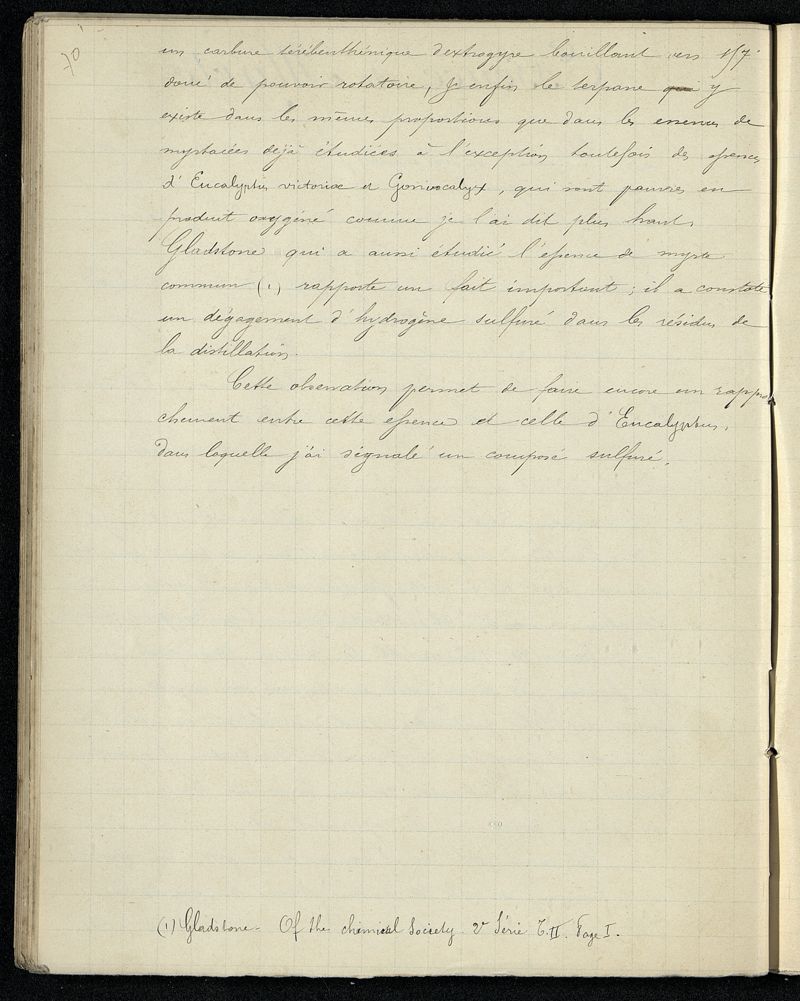 70
un carbure térébenthénique dextrogyre bouillant vers 157°
doué de pouvoir rotatoire, & enfin le terpane y
existe dans les mêmes proportions que dans les essences de
myrtacées déjà étudiées à l'exception toutefois des essences
d'Eucalyptus victoriae et Goniocalyx, qui sont pauvres en
produit oxygéné comme je l'ai dit plus haut.
Gladstone qui a aussi étudié l'essence de myrte
commun (1) rapporte un fait important ; il a constaté
un dégagement d'hydrogène sulfuré dans les résidus de
la distillation.
Cette observation permet de faire encore un rappro
chement entre cette essence et celle d'Eucalyptus,
dans laquelle j'ai signalé un composé sulfuré.
(1) Gladstone - Of the chemical Society 2e Série T. II. Page I.